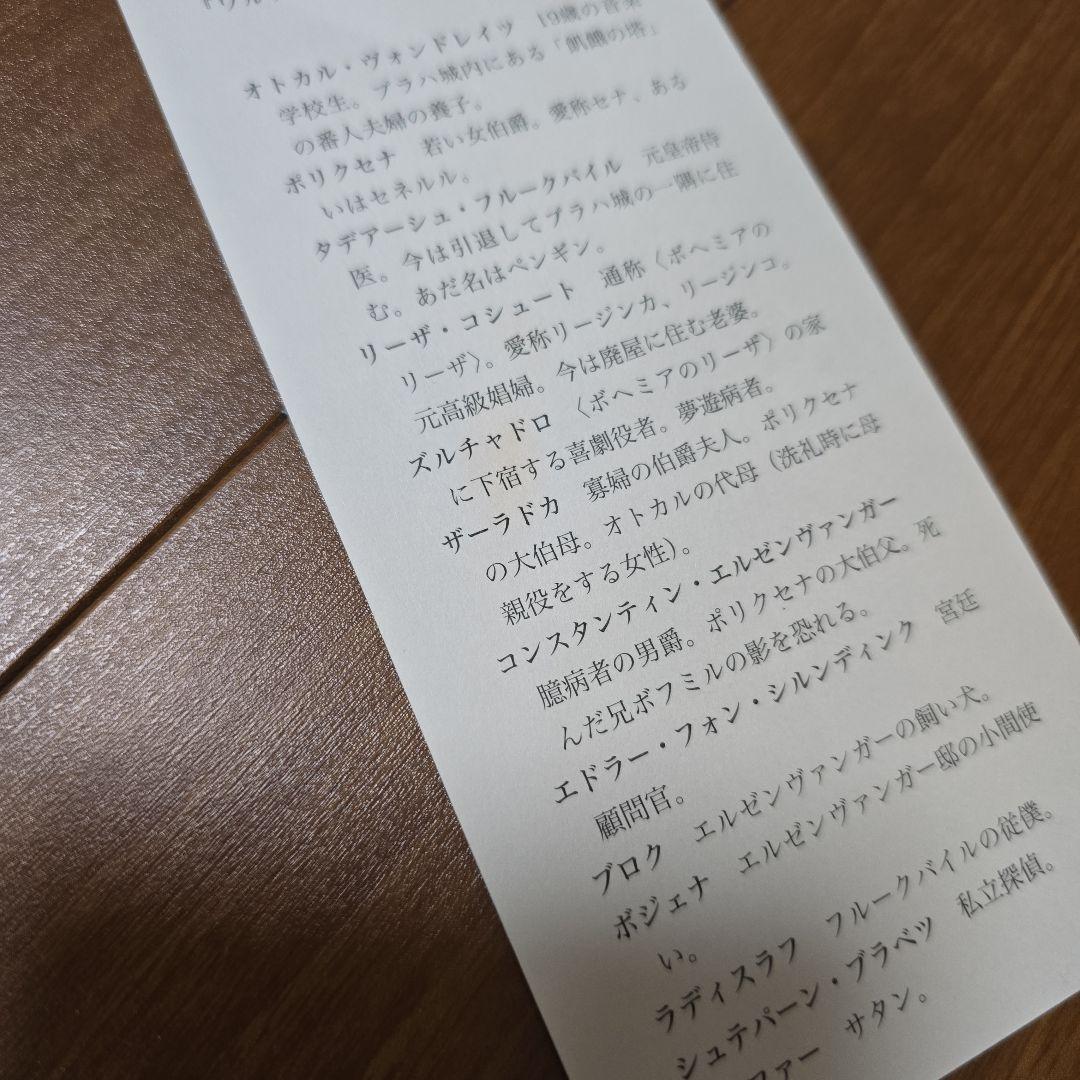 オトカル・ヴォンドレイツ　19歳の音楽
学校生。プラハ城内にある「飢餓の塔」
の番人夫婦の養子。
ポリクセナ　若い女伯爵。愛称セナ、ある
いはセネルル。
タデアーシュ・フルークバイル　元皇帝侍
医。今は引退してプラハ城の一隅に住
む。あだ名はペンギン。
リーザ・コシュート　通称〈ボヘミアの
リーザ〉。愛称リージンカ、リージンコ。
元高級娼婦。今は廃屋に住む老婆。
ズルチャドロ　〈ボヘミアのリーザ〉の家
に下宿する喜劇役者。夢遊病者。
ザーラドカ　寡婦の伯爵夫人。ポリクセナ
の大伯母。オトカルの代母（洗礼時に母
親役をする女性）。
コンスタンティン・エルゼンヴァンガー
臆病者の男爵。ポリクセナの大伯父。死
んだ兄ボフミルの影を恐れる。
エドラー・フォン・シルンディンク　宮廷
顧問官。
ブロク　エルゼンヴァンガーの飼い犬。
ボジェナ　エルゼンヴァンガー邸の小間使
い。
ラディスラフ　フルークバイルの従僕。
シュテパーン・ブラベツ　私立探偵。
ファー　サタン。